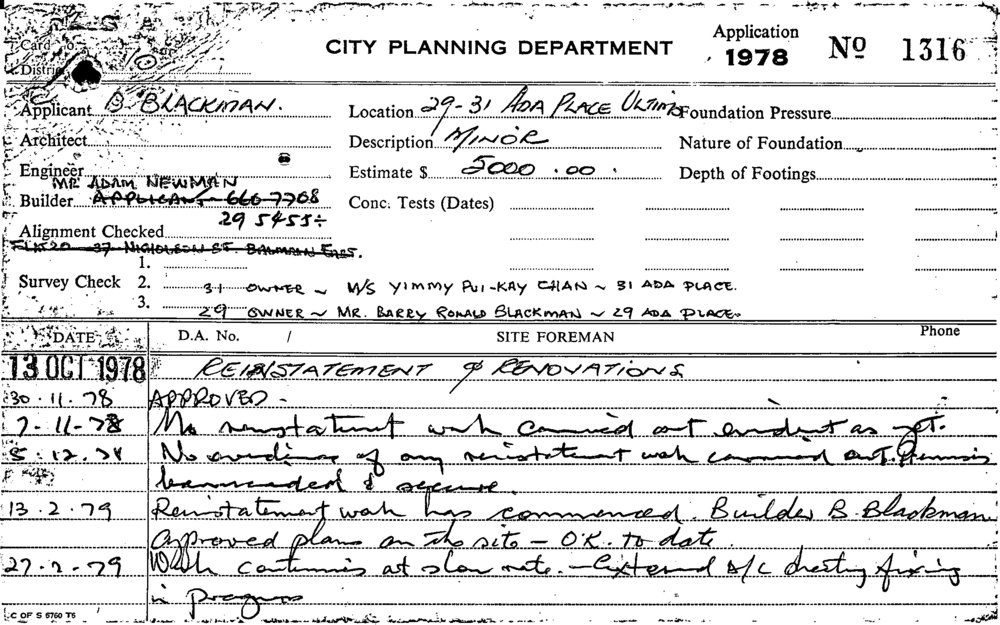 Card No.
CITY PLANNING DEPARTMENT
Application
1978
No 1316
District
Applicant B. BLACKMAN.
Location 29-31 ADA PLACE ULTIMO
Foundation Pressure
Architect
Description MINOR
Nature of Foundation
Engineer
Estimate $ 5000.00.
Depth of Footings
MR ADAM NEWMAN
Builder APPLICANT 660-7708
Conc. Tests (Dates)
29 5455
Alignment Checked
37 NICHOLSON ST. BALMAIN EAST.
1.
Survey Check 2. 31 OWNER ~ M/S YIMMY PUI-KAY CHAN ~ 31 ADA PLACE.
3. 29 OWNER ~ MR. BARRY RONALD BLACKMAN ~ 29 ADA PLACE.
DATE D.A. No. / SITE FOREMAN Phone
13 OCT 1978 REINSTATEMENT & RENOVATIONS
30.11.78 APPROVED -
7-11-78 No reinstatement work carried out evident as yet.
5.12.78 No evidence of any reinstatement work carried out. Premises
barricaded & secure.
13.2.79 Reinstatement work has commenced. Builder B. Blackman.
Approved plans on the site - O.K. to date.
27.2.79 Work continuing at slow rate. - External A/C sheeting fixing
in progress
C OF S 6760 T6